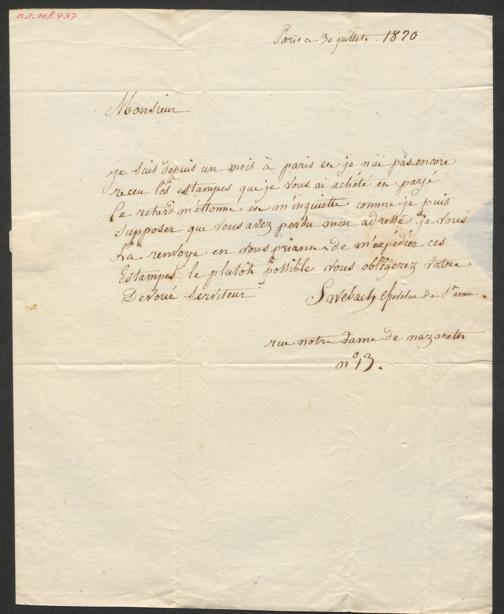 a.r. vol. 837
Paris ce 30 juillet 1820
Monsieur
je suis depuis un mois à paris en je n'ai pas encore
receu les estampes que je vous ai acheté en payé
Ce retard m'étonne en m'inquiette comme je puis
supposer que vous avez perdu mon adresse je vous
La renvoye en vous priant de m'expédier ces
Estampes le plutôt possible vous obligerez votre
Devoué serviteur Swebach
rue notre dame de nazareth
n° 13.